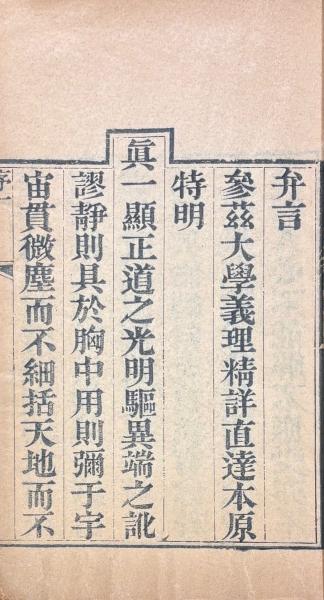 弁言
參茲大學義理精詳直達本原
特明
眞一顯正道之光明驅異端之訛
謬靜則具於胸中用則彌于宇
宙貫微塵而不細括天地而不
序一